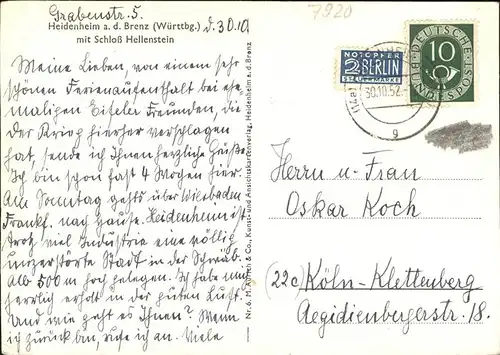 Grabenstr. 5.
Heidenheim a. d. Brenz (Württbg.) d. 30.10
mit Schloß Hellenstein
7920
Meine Lieben, von einem sehr
schönen Ferienaufenthalt bei ehe-
maligen Eifeler Freunden, die
der Krieg hierher verschlagen
hat, sende ich Ihnen herzliche Grüße.
Ich bin schon fast 4 Wochen hier.
Am Sonntag gehts über Wiesbaden
Frankf. nach Hause. Heidenheim ist
trotz viel Industrie eine völlig
unzerstörte Stadt in der Schwäb.
Alb 500 m hoch gelegen. Ich habe mich
herrlich erholt in der guten Luft.
Und wie geht es Ihnen? Wenn
ich zurück bin, rufe ich an. Viele
Kunst- und Ansichtskartenverlag, Heidenheim a. d. Brenz
NOTOPFER
2 BERLIN
STEUERMARKE
30.10.52
(14a)
g
DEUTSCHE
BUNDESPOST
10
Herrn u. Frau
Oskar Koch
(22c) Köln-Klettenberg
Aegidienbergerstr. 18.